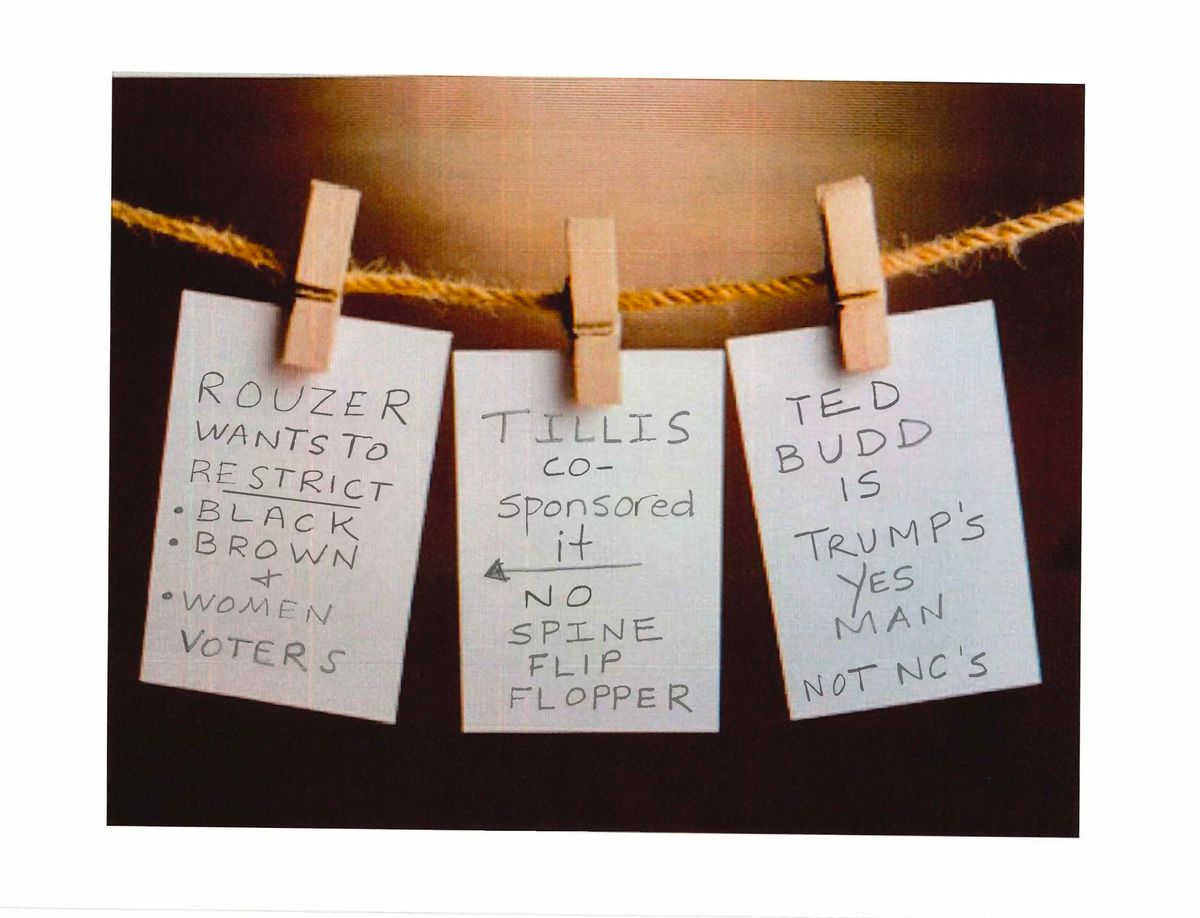 ROUZER
WANTS TO
RESTRICT
• BLACK
• BROWN
+
• WOMEN
VOTERS
TILLIS
CO-
sponsored
it
NO
SPINE
FLIP
FLOPPER
TED
BUDD
IS
TRUMP'S
YES
MAN
NOT NC'S